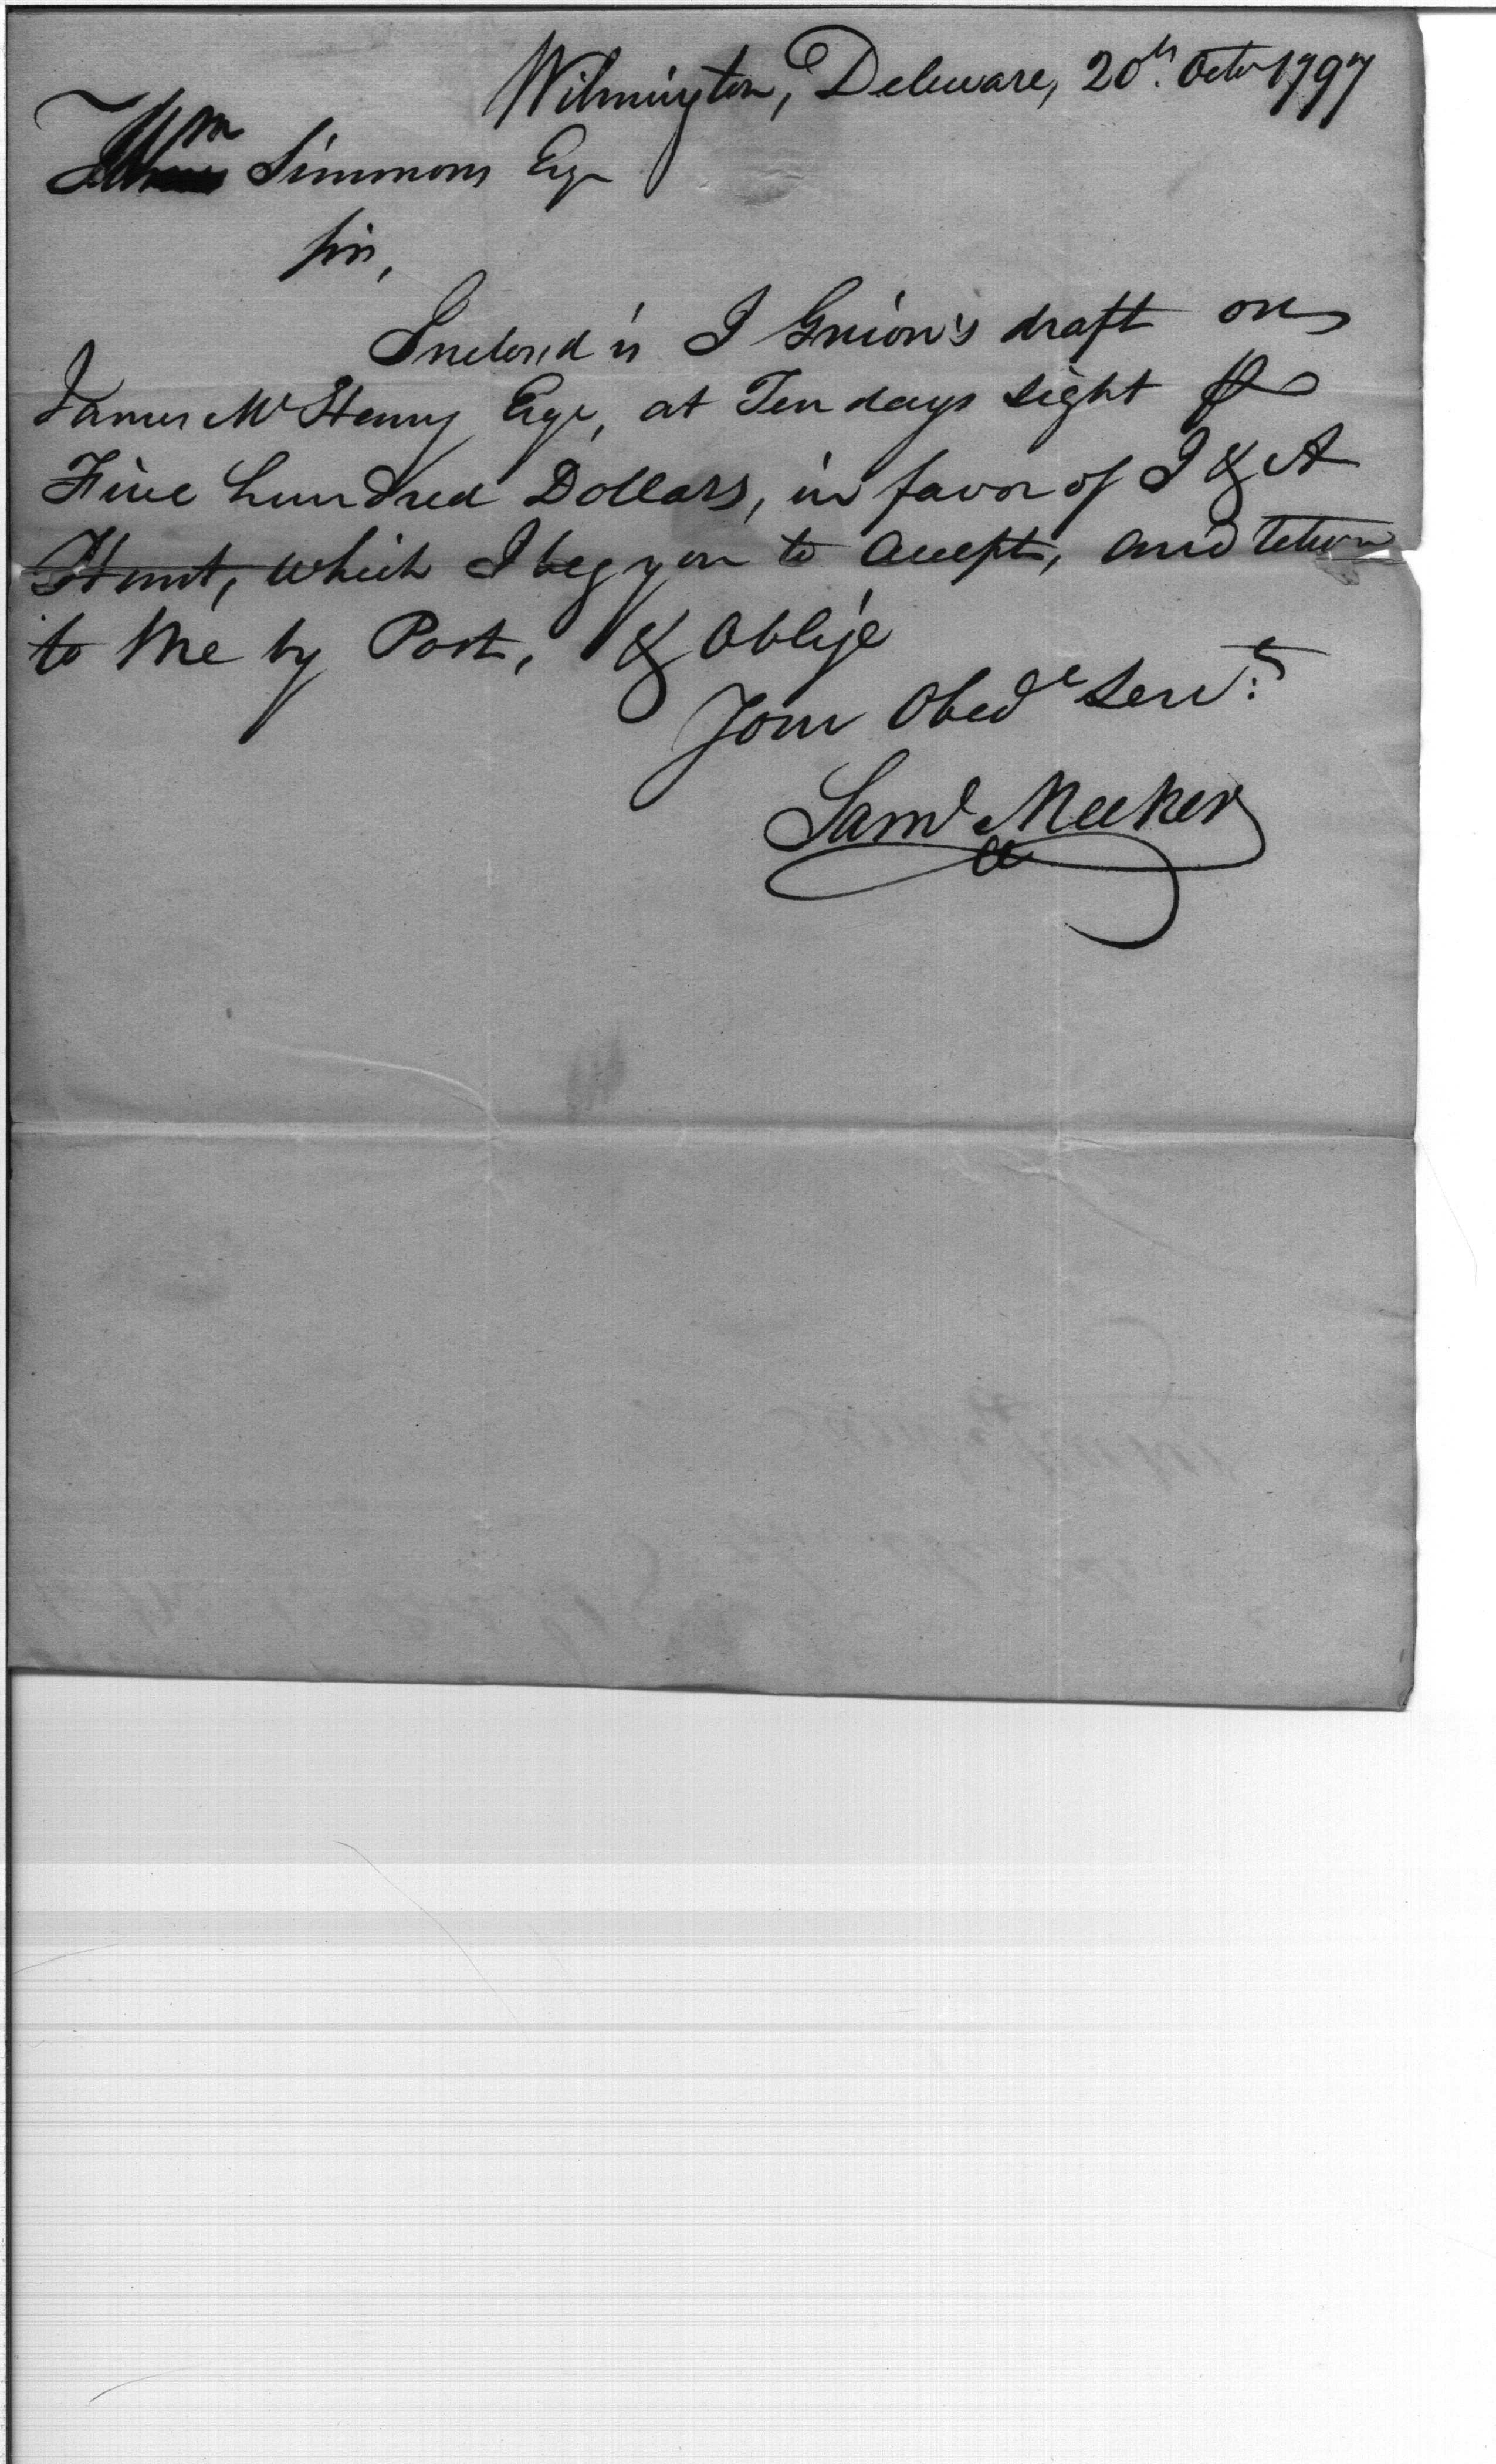 Wilmington, Deleware, 20th. Octr 1797
Wm Simmons Esqr
Sir,
Inclosed is I Guion's draft on
James McHenry Esqr, at Ten days sight for
Five hundred Dollars, in favor of I & A
Hunt, which I beg you to accept, and return
to Me by Post, & Oblige
Your Obedt Servt:
Saml Meeker